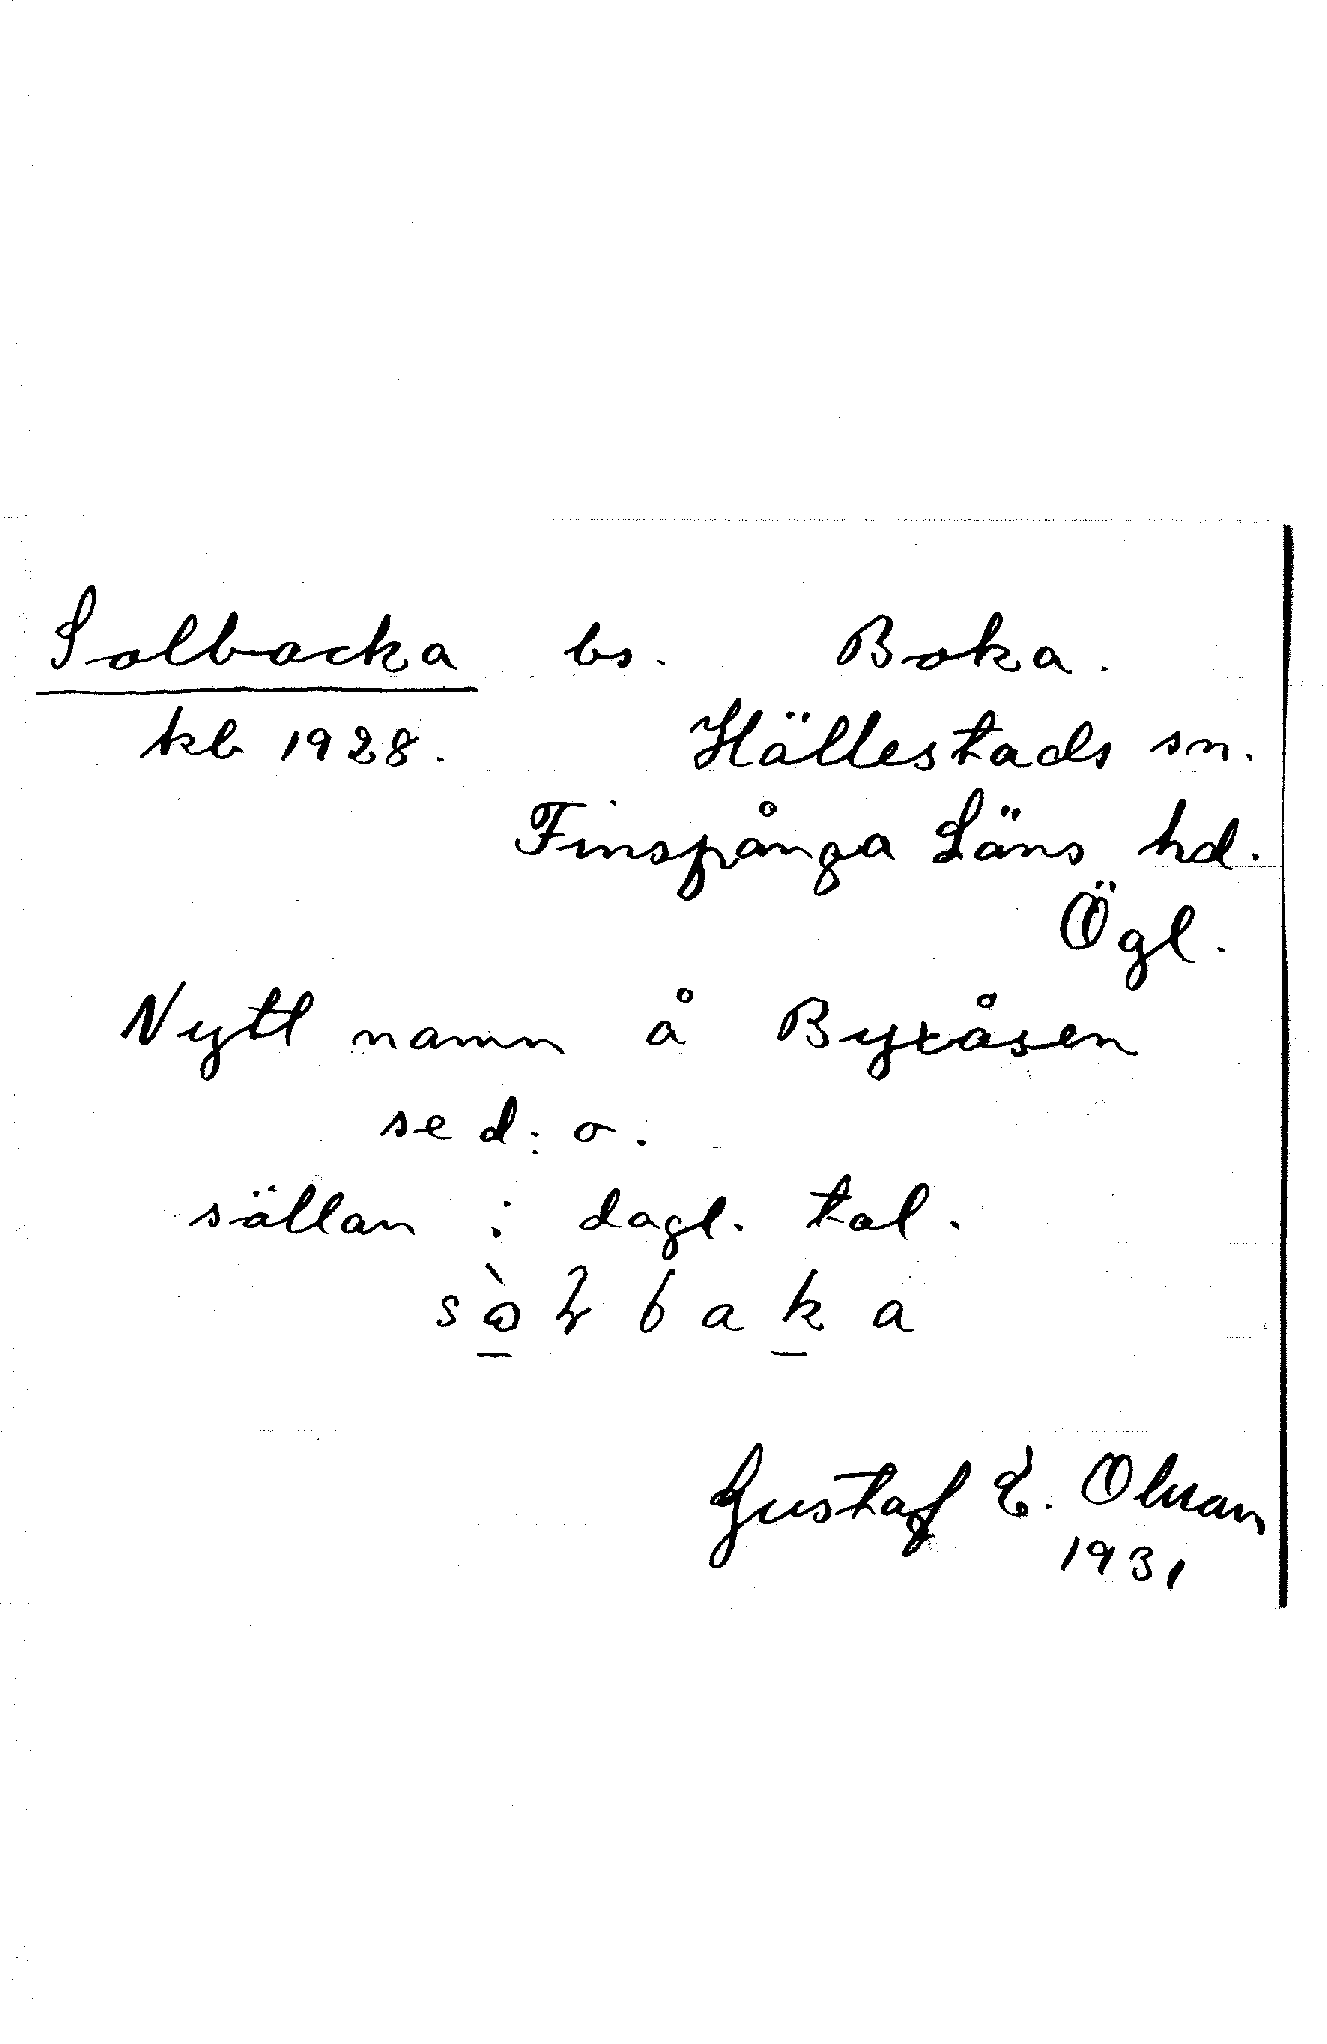 Solbacka bs. Boka.
kb 1928. Hällestads sn.
Finspånga Läns hd.
Ögl.
Nytt namn å Byxåsen
se d. o.
sällan i dagl. tal.
Gustaf E. Olsson
1931